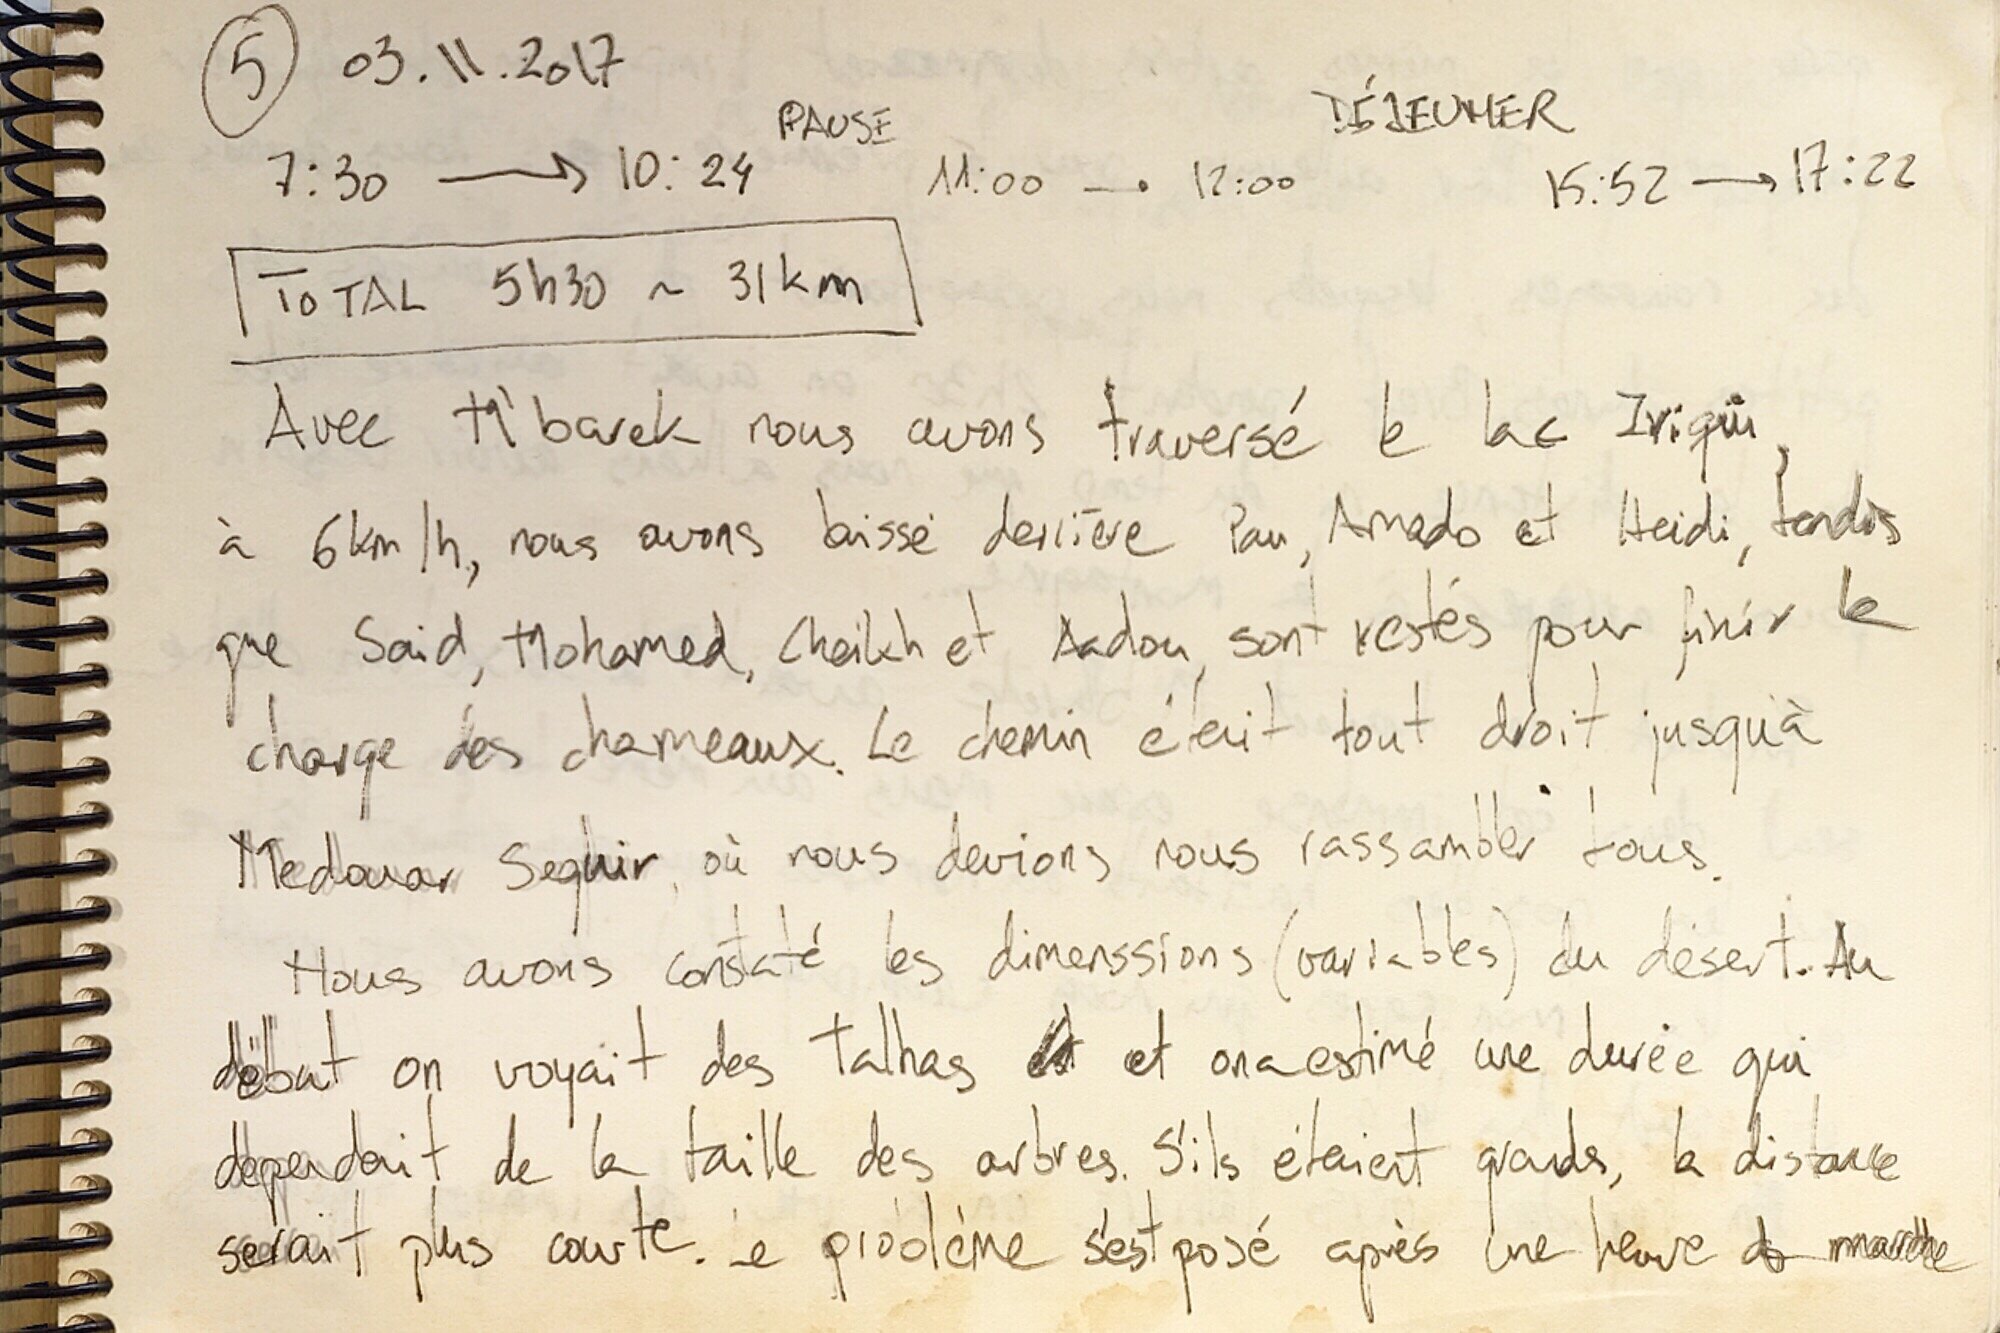 5 03.11.2017
PAUSE DÉJEUNER
7:30 → 10:24 11:00 → 12:00 15:52 → 17:22
TOTAL 5h30 ~ 31km
Avec M'barek nous avons traversé le lac Iriqui,
à 6km/h, nous avons laissé derrière Pau, Amado et Heidi, tandis
que Said, Mohamed, Cheikh et Aadou, sont restés pour finir le
charge des chameaux. Le chemin était tout droit jusqu'à
Medouar Seghir, où nous devions nous rassambler tous.
Nous avons constaté les dimenssions (variables) du désert. Au
début on voyait des Talhas et on a estimé une durée qui
dépendait de la taille des arbres. S'ils étaient grands, la distance
serait plus courte. Le problème s'est posé après une heure de marche